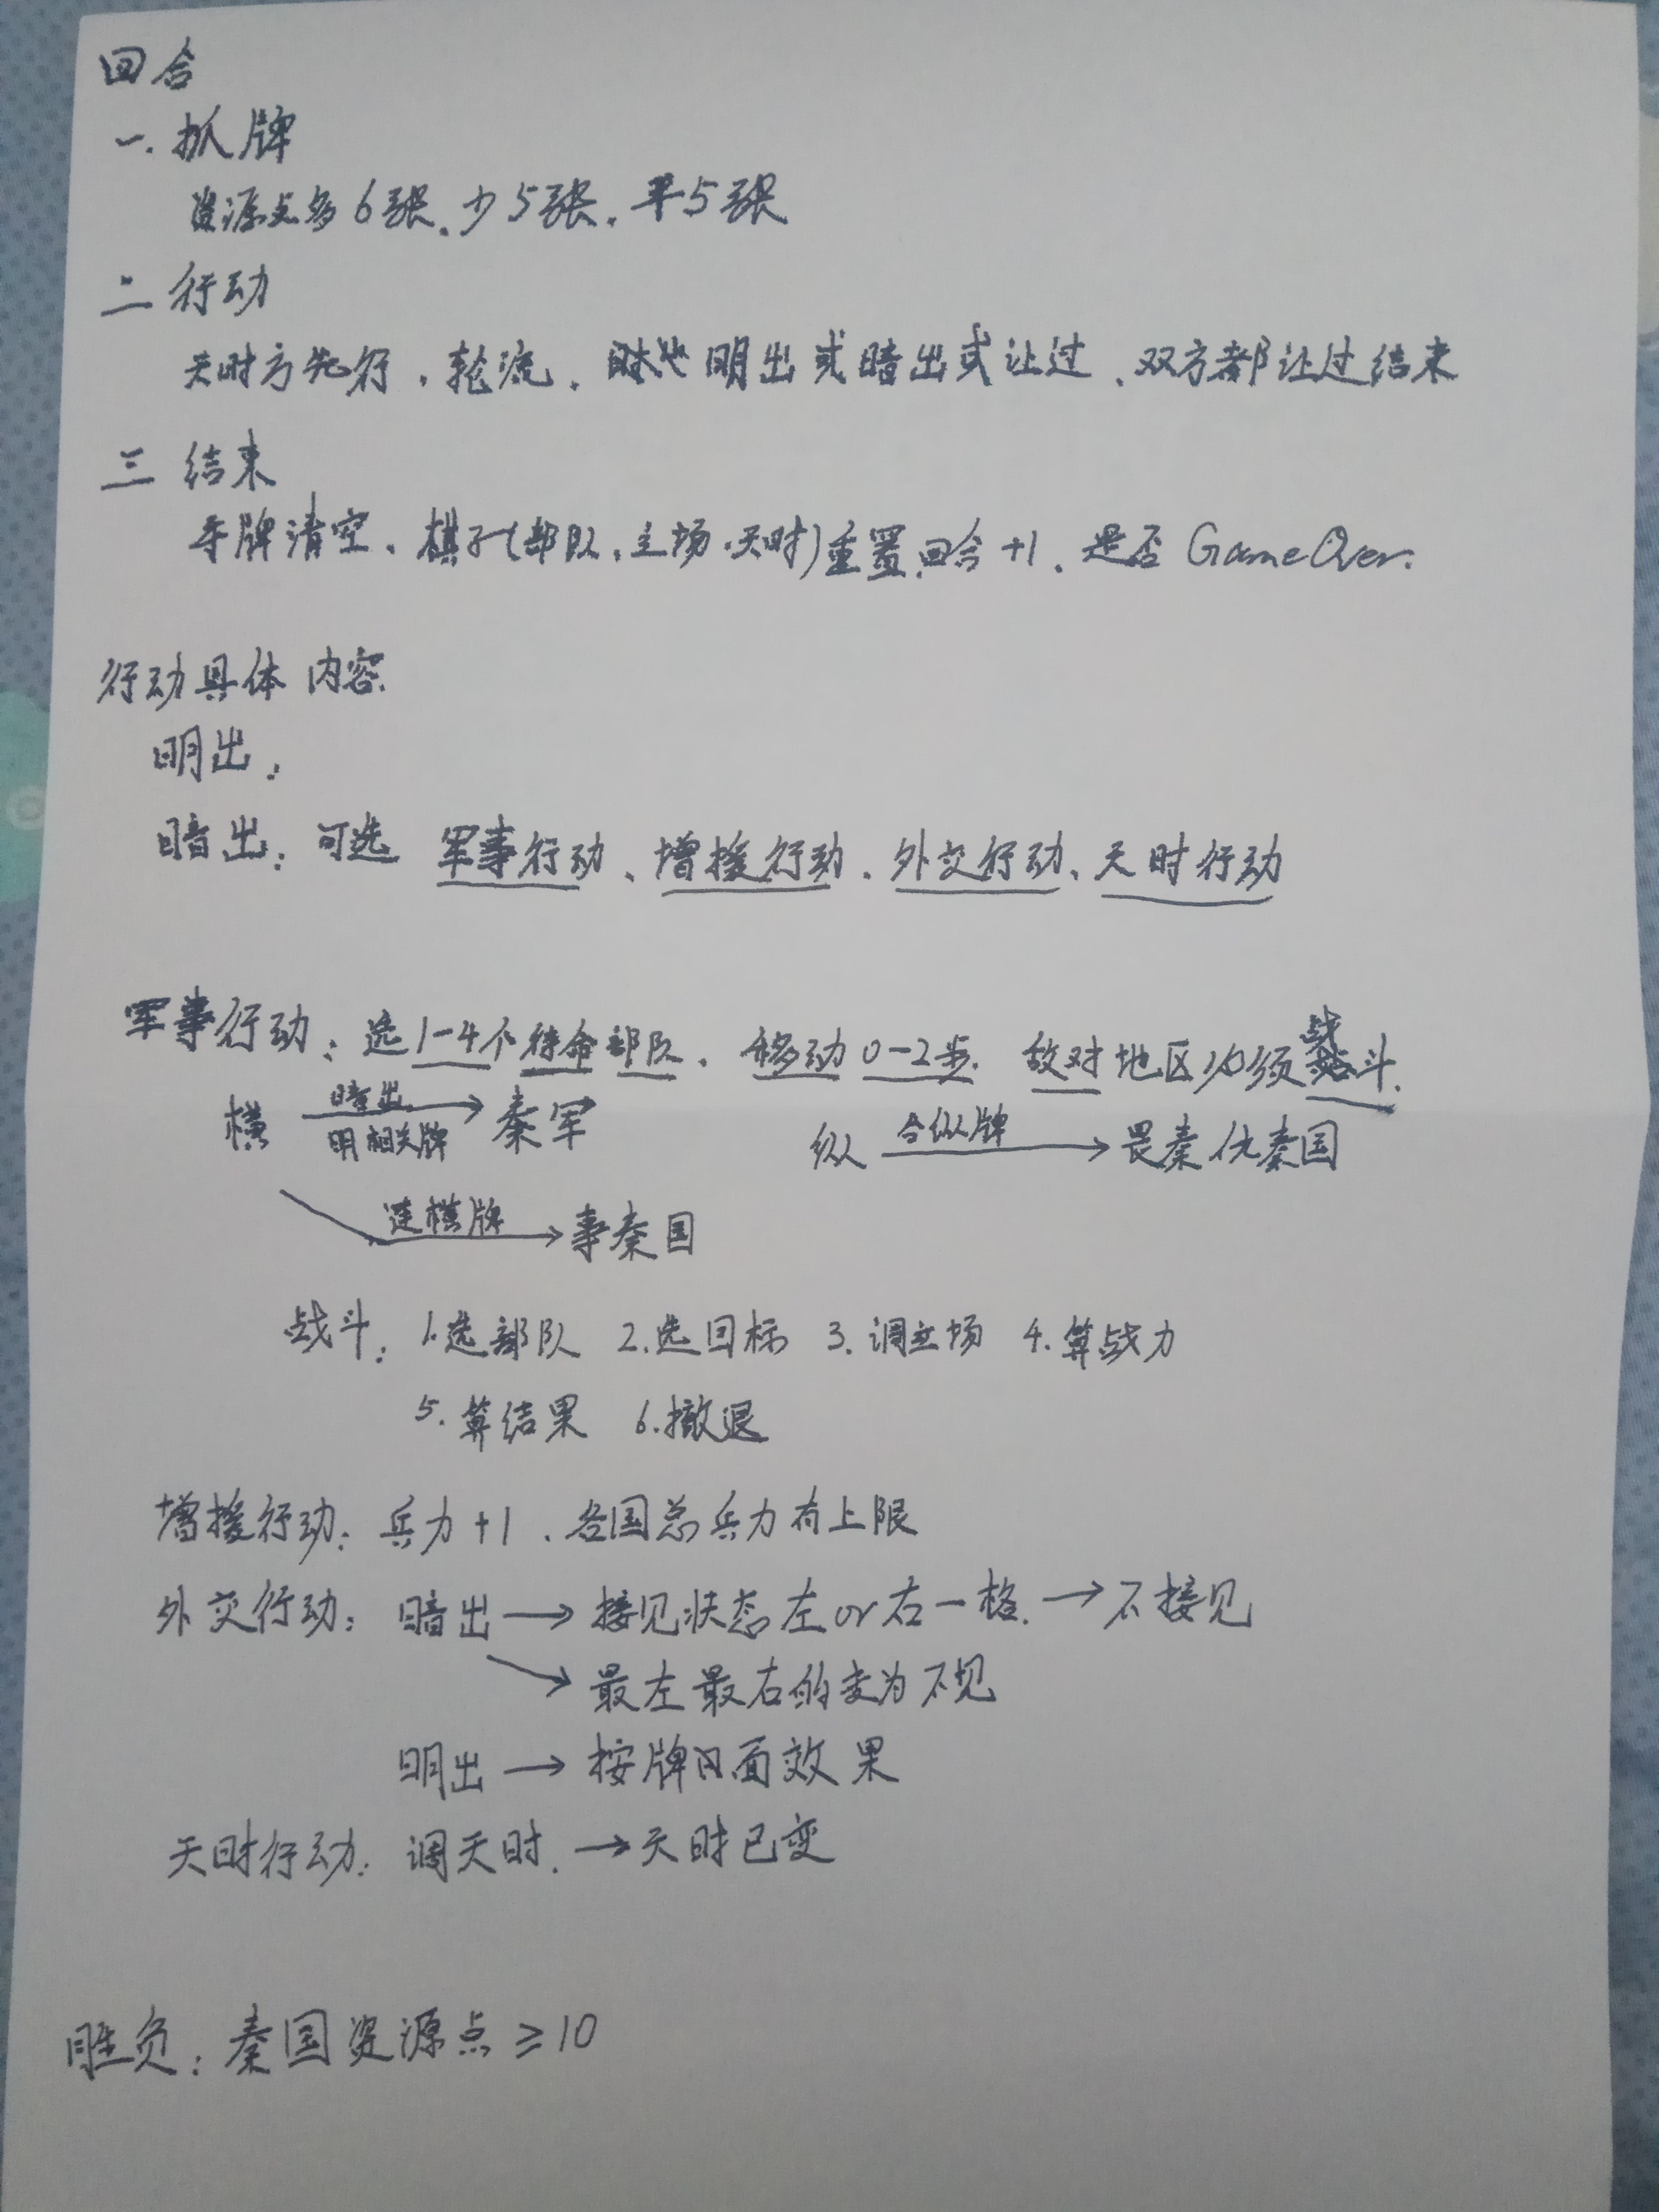 回合
一.抓牌
资源点多6张、少5张、平5张
二 行动
天时方先行、轮流、明出或暗出或让过、双方都让过结束
三 结束
手牌清空、棋子(部队、立场、天时)重置、回合+1、是否GameOver.
行动具体内容
明出:
暗出:可选 军事行动、增援行动、外交行动、天时行动
军事行动:选1-4个待命部队、移动0-2步. 敌对地区必须战斗.
横 暗出 明相关牌 → 秦军 纵 合纵牌 → 畏秦仇秦国
连横牌 → 事秦国
战斗:1.选部队 2.选目标 3.调立场 4.算战力
5.算结果 6.撤退
增援行动:兵力+1、各国总兵力有上限
外交行动:暗出→接见状态左or右一格.→不接见
→最左最右的变为不见
明出→按牌面效果
天时行动:调天时.→天时已变
胜负:秦国资源点≥10